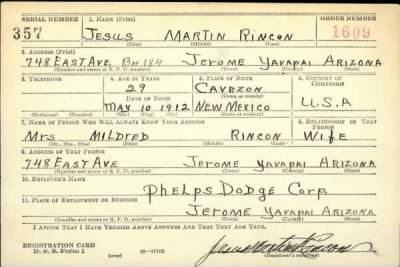 SERIAL NUMBER 1. NAME (Print) ORDER NUMBER
357 JESUS MARTIN RINCON 1609
(First) (Middle) (Last)
2. ADDRESS (Print)
748 EAST AVE Box 184 JEROME YAVAPAI ARIZONA
(Number and street or R. F. D. number) (Town) (County) (State)
3. TELEPHONE 4. AGE IN YEARS 5. PLACE OF BIRTH 6. COUNTRY OF CITIZENSHIP
29 CAVEZON
DATE OF BIRTH (Town or county)
MAY 10 1912 NEW MEXICO U.S.A
(Exchange) (Number) (Mo.) (Day) (Yr.) (State or country)
7. NAME OF PERSON WHO WILL ALWAYS KNOW YOUR ADDRESS 8. RELATIONSHIP OF THAT PERSON
MRS MILDRED RINCON WIFE
(Mr., Mrs., Miss) (First) (Middle) (Last)
9. ADDRESS OF THAT PERSON
748 EAST AVE JEROME YAVAPAI ARIZONA
(Number and street or R. F. D. number) (Town) (County) (State)
10. EMPLOYER'S NAME
PHELPS DODGE CORP.
11. PLACE OF EMPLOYMENT OR BUSINESS
JEROME YAVAPAI ARIZONA
(Number and street or R. F. D. number) (Town) (County) (State)
I AFFIRM THAT I HAVE VERIFIED ABOVE ANSWERS AND THAT THEY ARE TRUE.
REGISTRATION CARD
D. S. S. Form 1 16-17105 Jesus Martin Rincon
(over) (Registrant's signature)